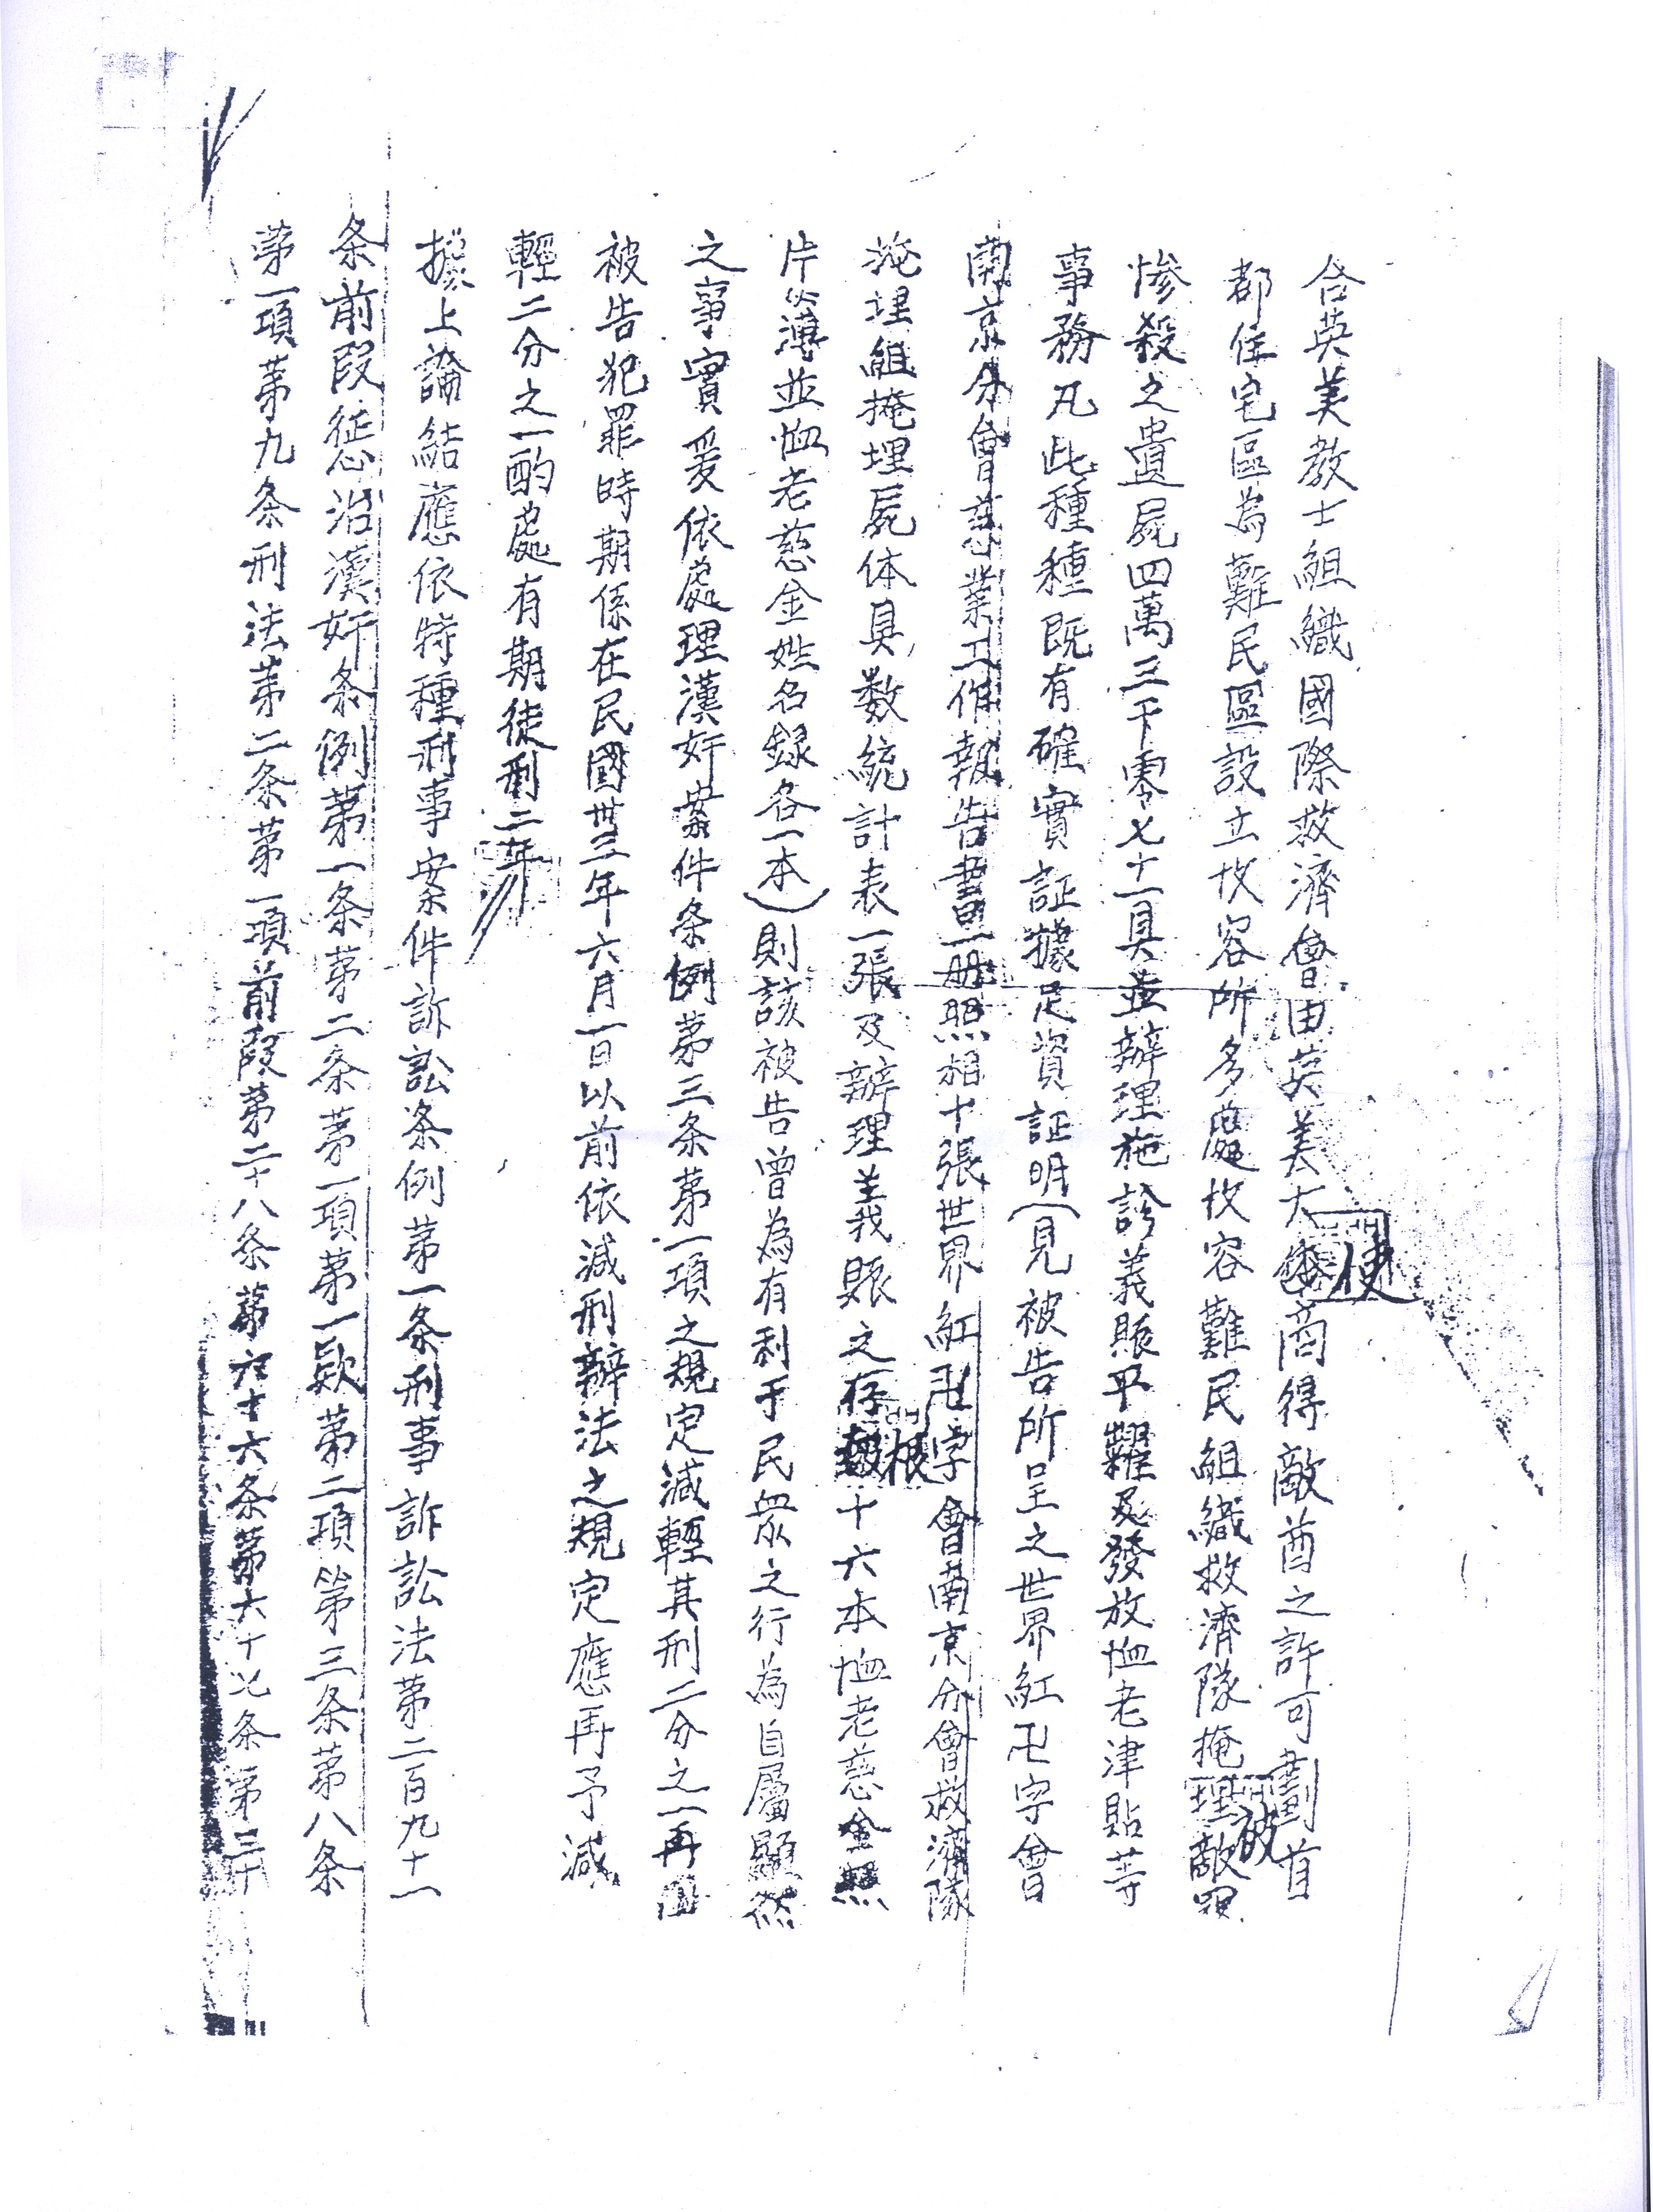 合英美教士組織國際救濟會由英美大使商得敵酋之許可劃首
都住宅區為難民區設立收容所多處收容難民組織救濟隊掩埋被敵
慘殺之遺屍四萬三千零七十一具並辦理施診義賑平糶及發放恤老津貼等
事務凡此種種既有確實証據足資証明（見被告所呈之世界紅卍字會
南京分會慈業工作報告書一册照相十張世界紅卍字會南京分會救濟隊
掩埋組掩埋屍体具数統計表一張及辦理義賑之存根十六本恤老慈金照
片簿並恤老慈金姓名録各一本）則該被告曾為有利于民眾之行為自屬顯然
之事實爰依處理漢奸案件条例第三条第一項之規定減輕其刑二分之一再
被告犯罪時期係在民國卅三年六月一日以前依減刑辦法之規定應再予減
輕二分之一酌處有期徒刑二年
據上論結應依特種刑事案件訴訟条例第一条刑事訴訟法第二百九十一
条前段懲治漢奸条例第一条第二条第一項第一款第二項第三条第八条
第一項第九条刑法第二条第一項前段第二十八条第六十六条第六十七条第三十